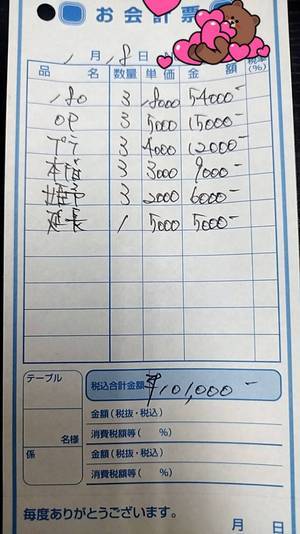 お会計票
1月18日
品名 数量 単価 金額 税率(%)
180 3 18000 54000-
OP 3 5000 15000-
プラ 3 4000 12000-
本指 3 3000 9000-
姫予 3 2000 6000-
延長 1 5000 5000-
テーブル 税込合計金額 ¥101,000-
金額(税抜・税込)
名様 消費税額等( %)
係 金額(税抜・税込)
消費税額等( %)
毎度ありがとうございます。
月 日